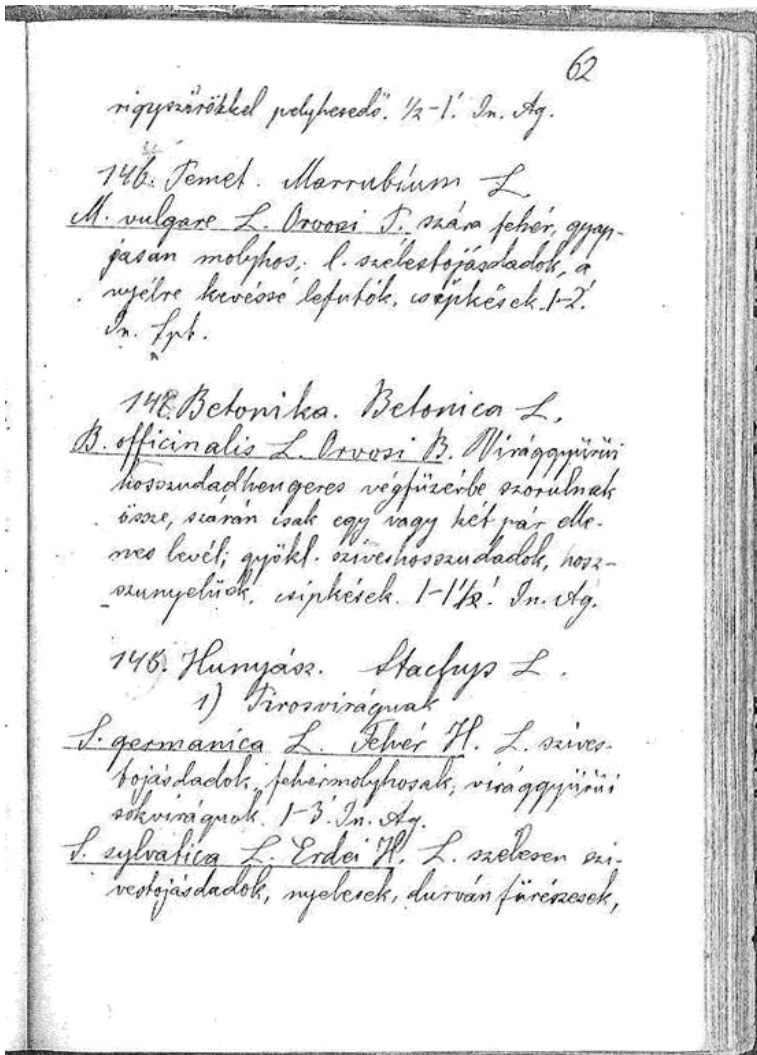 62
rigyszőrökkel pelyhesedő. 1/2-1'. Jn. Ag.
146. Pemet. Marrubium L.
M. vulgare L. Orvosi P. szára fehér, gyap-
jasan molyhos; l. szélestojásdadok, a
nyélre kevéssé lefutók, csipkések. 1-2'.
Jn. Spt.
147. Betonika. Betonica L.
B. officinalis L. Orvosi B. Virággyürüi
hosszudadhengeres végfüzérbe szorulnak
össze, szárán csak egy vagy két pár elle-
nes levél; gyökl. sziveshosszudadok, hosz-
szunyelüek, csipkések. 1-1 1/2'. Jn. Ag.
148. Hunyász. Stachys L.
1) Pirosviráguak
S. germanica L. Fehér H. L. szives-
tojásdadok, fehérmolyhosak; virággyürüi
sokviráguak. 1-3'. Jn. Ag.
S. sylvatica L. Erdei H. L. szélesen szi-
vestojásdadok, nyelesek, durván fürészesek,